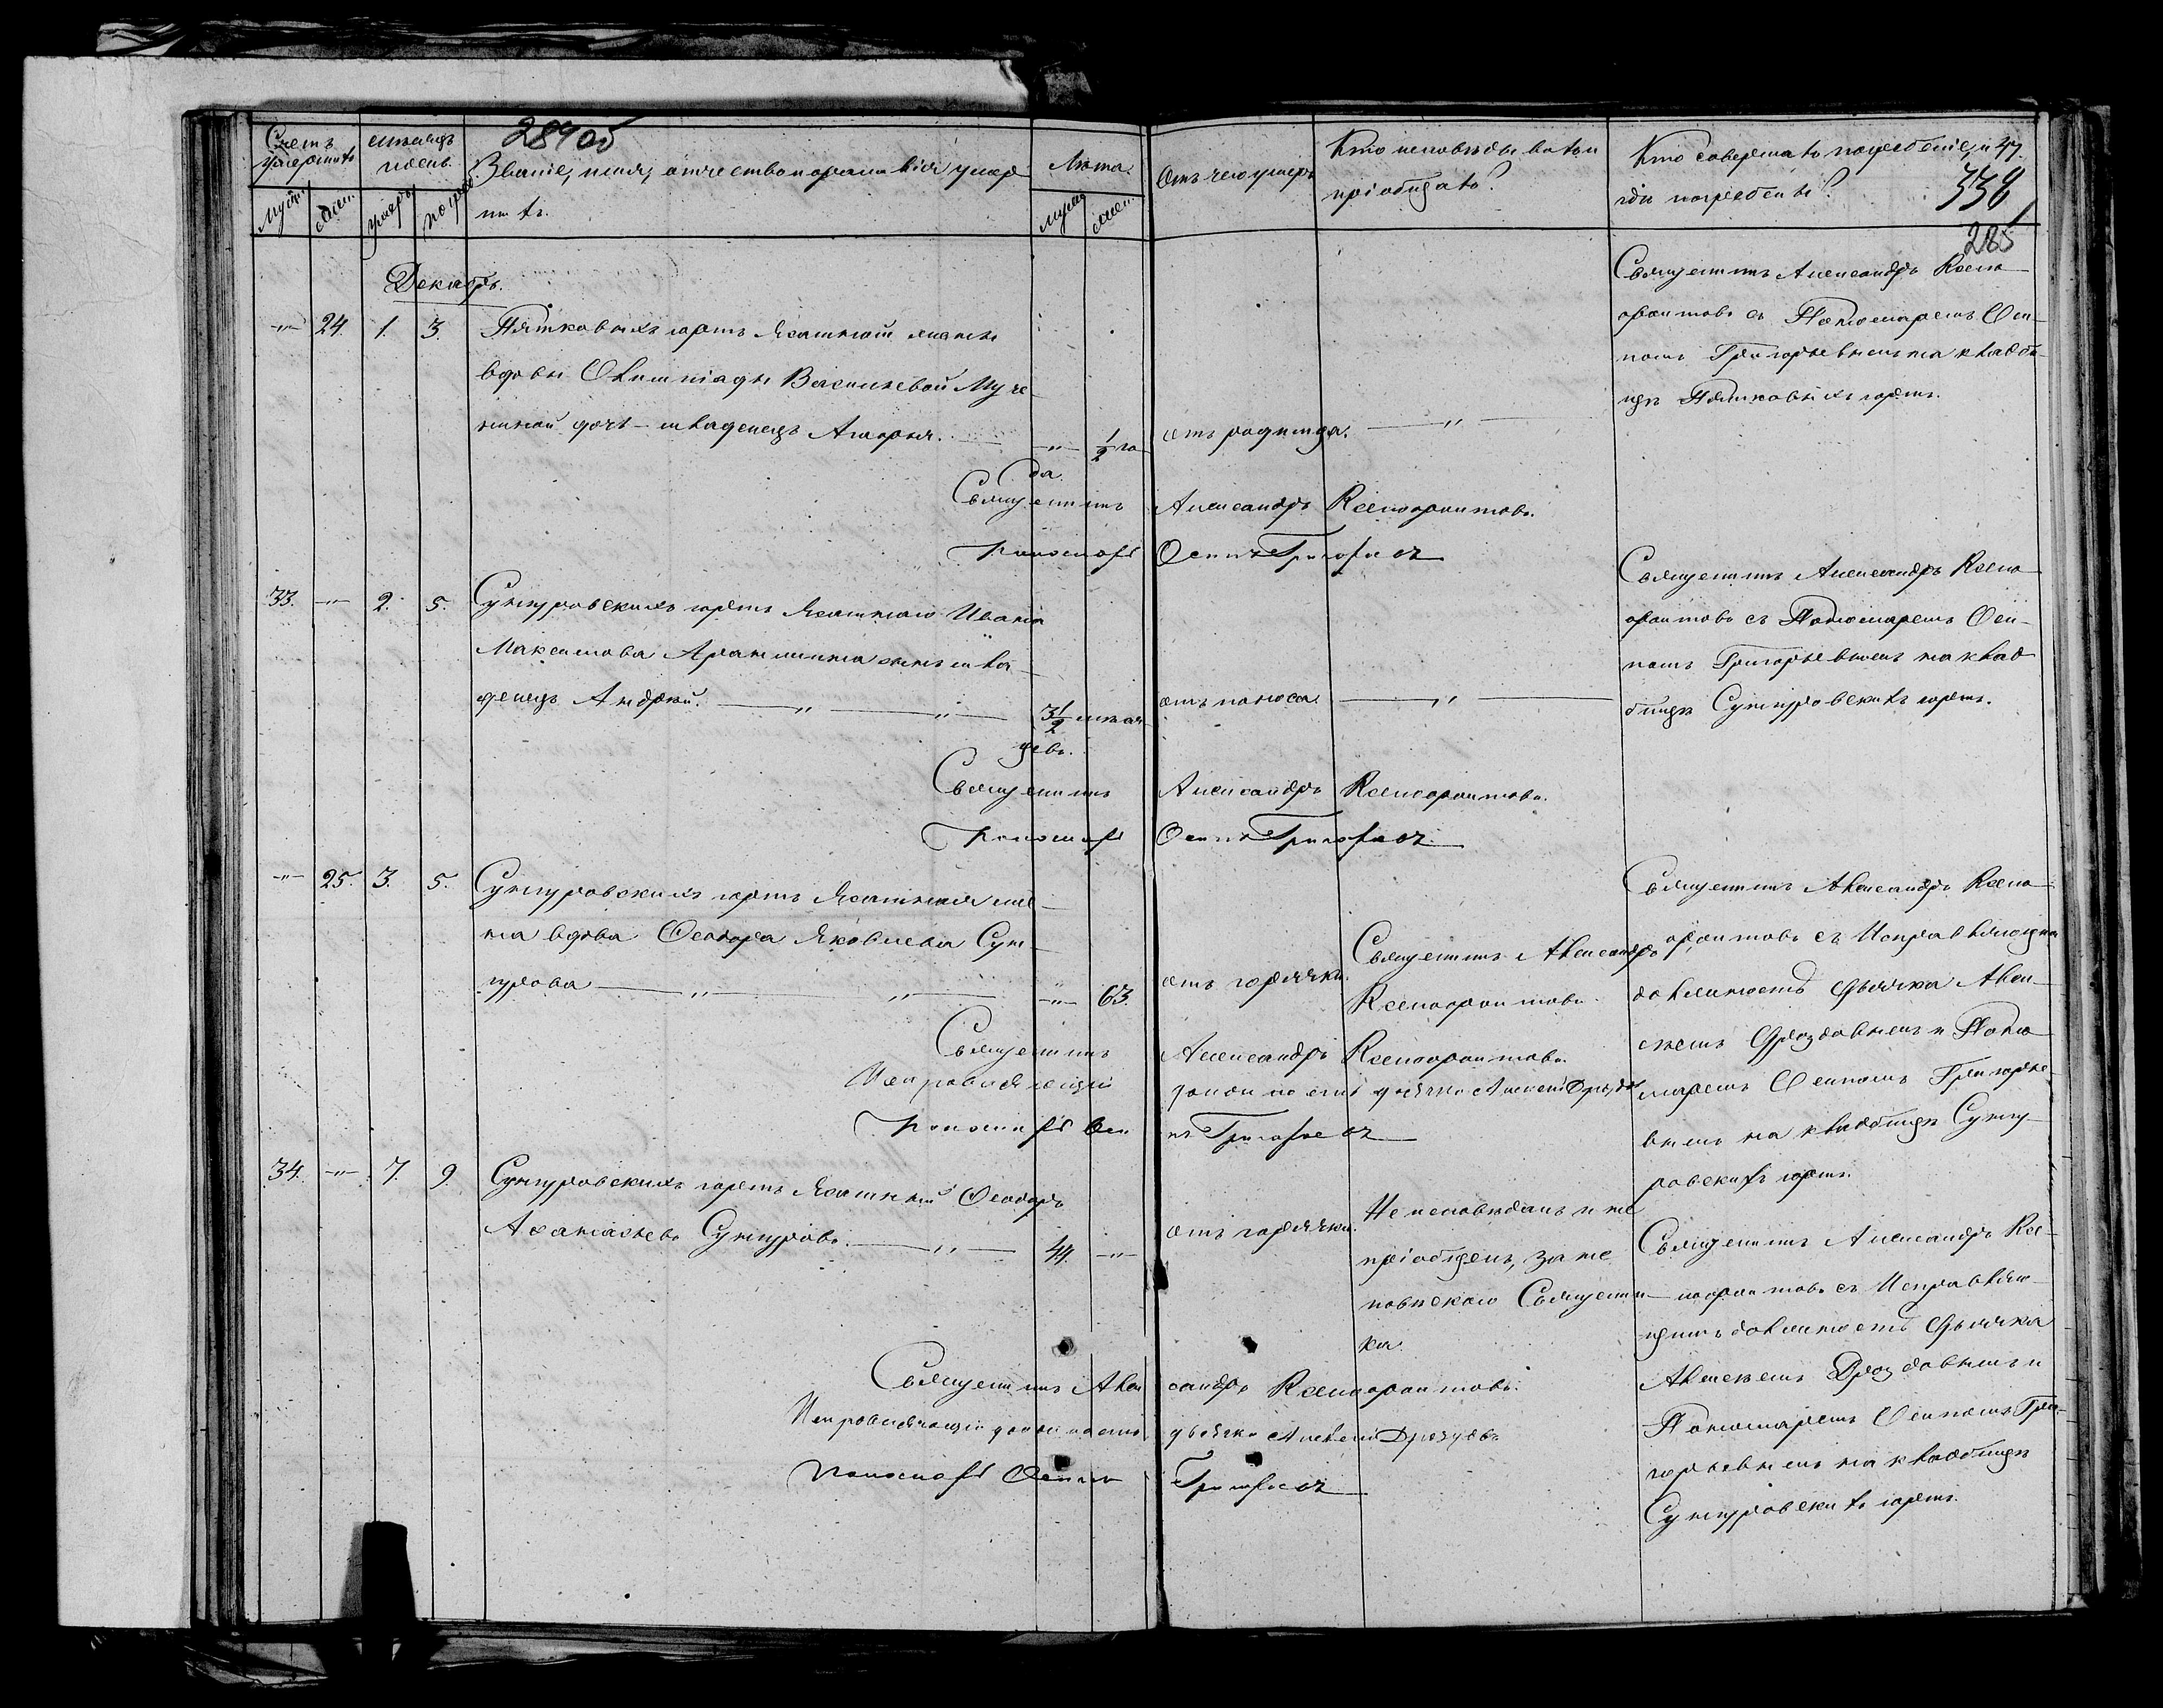 284 об
Счетъ умершихъ
Мѣсяцъ и день
Званіе, имя, отчество и фамилія умер
шихъ.
Лѣта.
Отъ чего умеръ
Кто исповѣдывалъ и
пріобщалъ?
Кто совершалъ погребеніе, и
гдѣ погребены?
338
285
муж.
жен.
умер.
погреб.
муж.
жен.
Декабрь.
-"- 24. 1. 3.
юртъ Ясашной
вдовы Олимпіады Васильевой
дочь младенецъ Марья.
-"- 1/2 го
да
отъ родимца.
Священникъ Александръ Ксено
фонтовъ съ Пономаремъ Оси
помъ Григорьевымъ на кладби
щѣ юртъ.
Священникъ Александръ Ксенофонтовъ.
Пономарь Осипъ Григорьевъ
33. -"- 2. 5.
Сунгуровскихъ юртъ Ясашнаго Ивана
Максимова сынъ мла
денецъ Андрей.
3 1/2 мѣся
цевъ.
отъ поноса
Священникъ Александръ Ксено
фонтовъ съ Пономаремъ Оси
помъ Григорьевымъ на клад
бищѣ Сунгуровскихъ юртъ.
Священникъ Александръ Ксенофонтовъ.
Пономарь Осипъ Григорьевъ
-"- 25. 3. 5.
Сунгуровскихъ юртъ Ясашная
вдова Ѳеодора Яковлева Сун
гурова
-"- 63.
отъ горячки.
Священникъ Александръ
Ксенофонтовъ.
Священникъ Александръ Ксено
фонтовъ съ Исправляющимъ
должность Дьячка Алек
сѣемъ Дроздовымъ и Поно
маремъ Осипомъ Григорье
вымъ на кладбищѣ Сунгу
ровскихъ юртъ.
Священникъ Александръ Ксенофонтовъ.
Исправляющій должность дьячка Алексѣй Дроздовъ
Пономарь Осипъ Григорьевъ
34. -"- 7. 9.
Сунгуровскихъ юртъ Ясашный Ѳеодоръ
Аѳанасьевъ Сунгуровъ.
44. -"-
отъ горячки.
Не исповѣданъ и не
пріобщенъ, за не
Священни
ка.
Священникъ Александръ Ксе
нофонтовъ съ Исправляю
щимъ должность Дьячка
Алексѣемъ Дроздовымъ и
Пономаремъ Осипомъ Гри
горьевымъ на кладбищѣ
Сунгуровскихъ юртъ.
Священникъ Александръ Ксенофонтовъ.
Исправляющій должность дьячка Алексѣй Дроздовъ
Пономарь Осипъ Григорьевъ